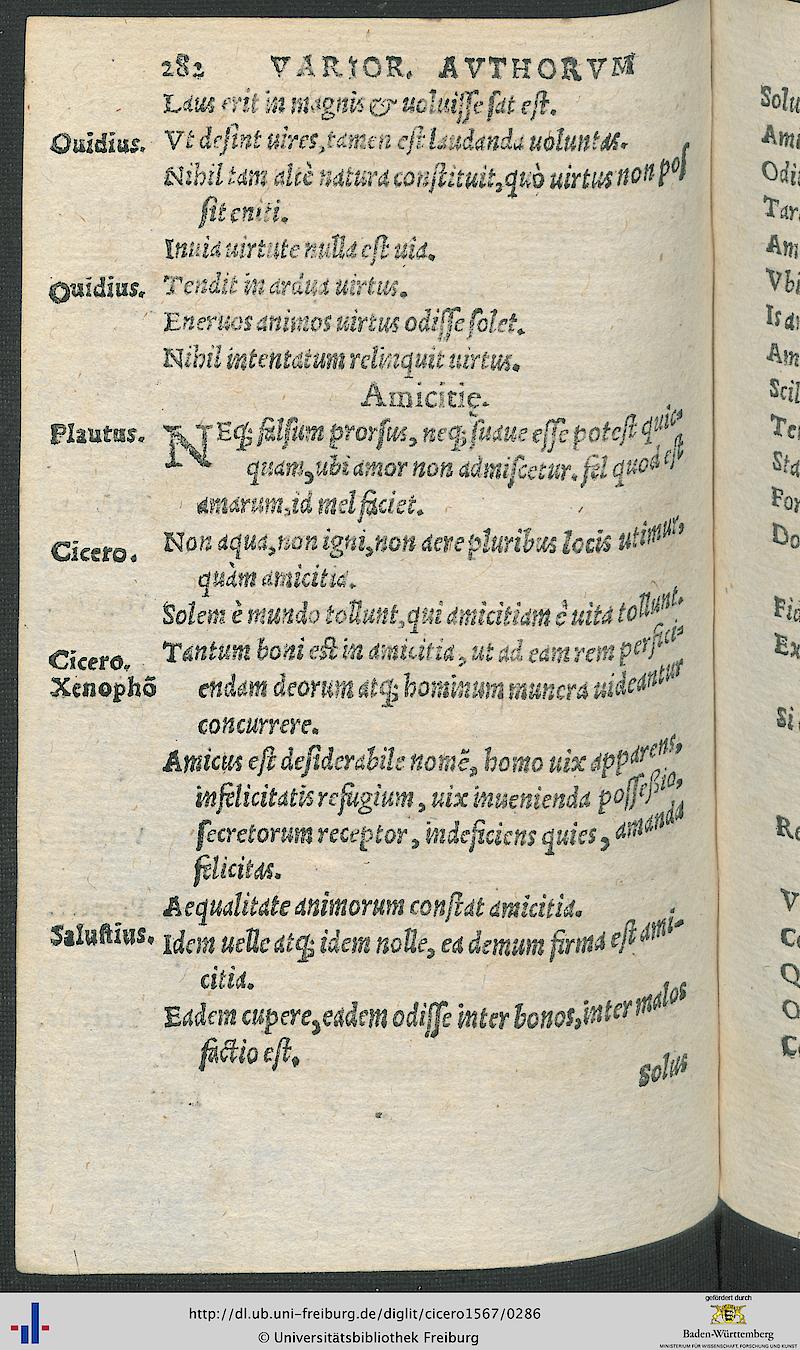 282 VARIOR. AVTHORVM
Laus erit in magnis & uoluisse sat est.
Ouidius. Vt desint uires, tamen est laudanda uoluntas.
Nihil tam altè natura constituit, quò uirtus non pos
sit eniti.
Inuia uirtute nulla est uia.
Ouidius. Tendit in ardua uirtus.
Eneruos animos uirtus odisse solet.
Nihil intentatum relinquit uirtus.
Amicitię.
Plautus. NEq; falsum prorsus, neq; suaue esse potest quic-
quam, ubi amor non admiscetur. fel quod est
amarum, id mel faciet.
Cicero. Non aqua, non igni, non aere pluribus locis utimur,
quàm amicitia.
Solem è mundo tollunt, qui amicitiam è uita tollunt.
Cicero. Tantum boni est in amicitia, ut ad eam rem perfici-
Xenophō endam deorum atq; hominum munera uideantur
concurrere.
Amicus est desiderabile nomē, homo uix apparens,
infelicitatis refugium, uix inuenienda posseßio,
secretorum receptor, indeficiens quies, amanda
felicitas.
Aequalitate animorum constat amicitia.
Salustius. Idem uelle atq; idem nolle, ea demum firma est ami-
citia.
Eadem cupere, eadem odisse inter bonos, inter malos
factio est.
Solus
Solu
Ami
Odi
Tar
Am
Vbi
Is a
Am
Scil
Te
Sta
For
Do
Fid
Ex
Si
Re
V
Co
Q
O
C
http://dl.ub.uni-freiburg.de/diglit/cicero1567/0286
© Universitätsbibliothek Freiburg
gefördert durch
Baden-Württemberg
MINISTERIUM FÜR WISSENSCHAFT, FORSCHUNG UND KUNST